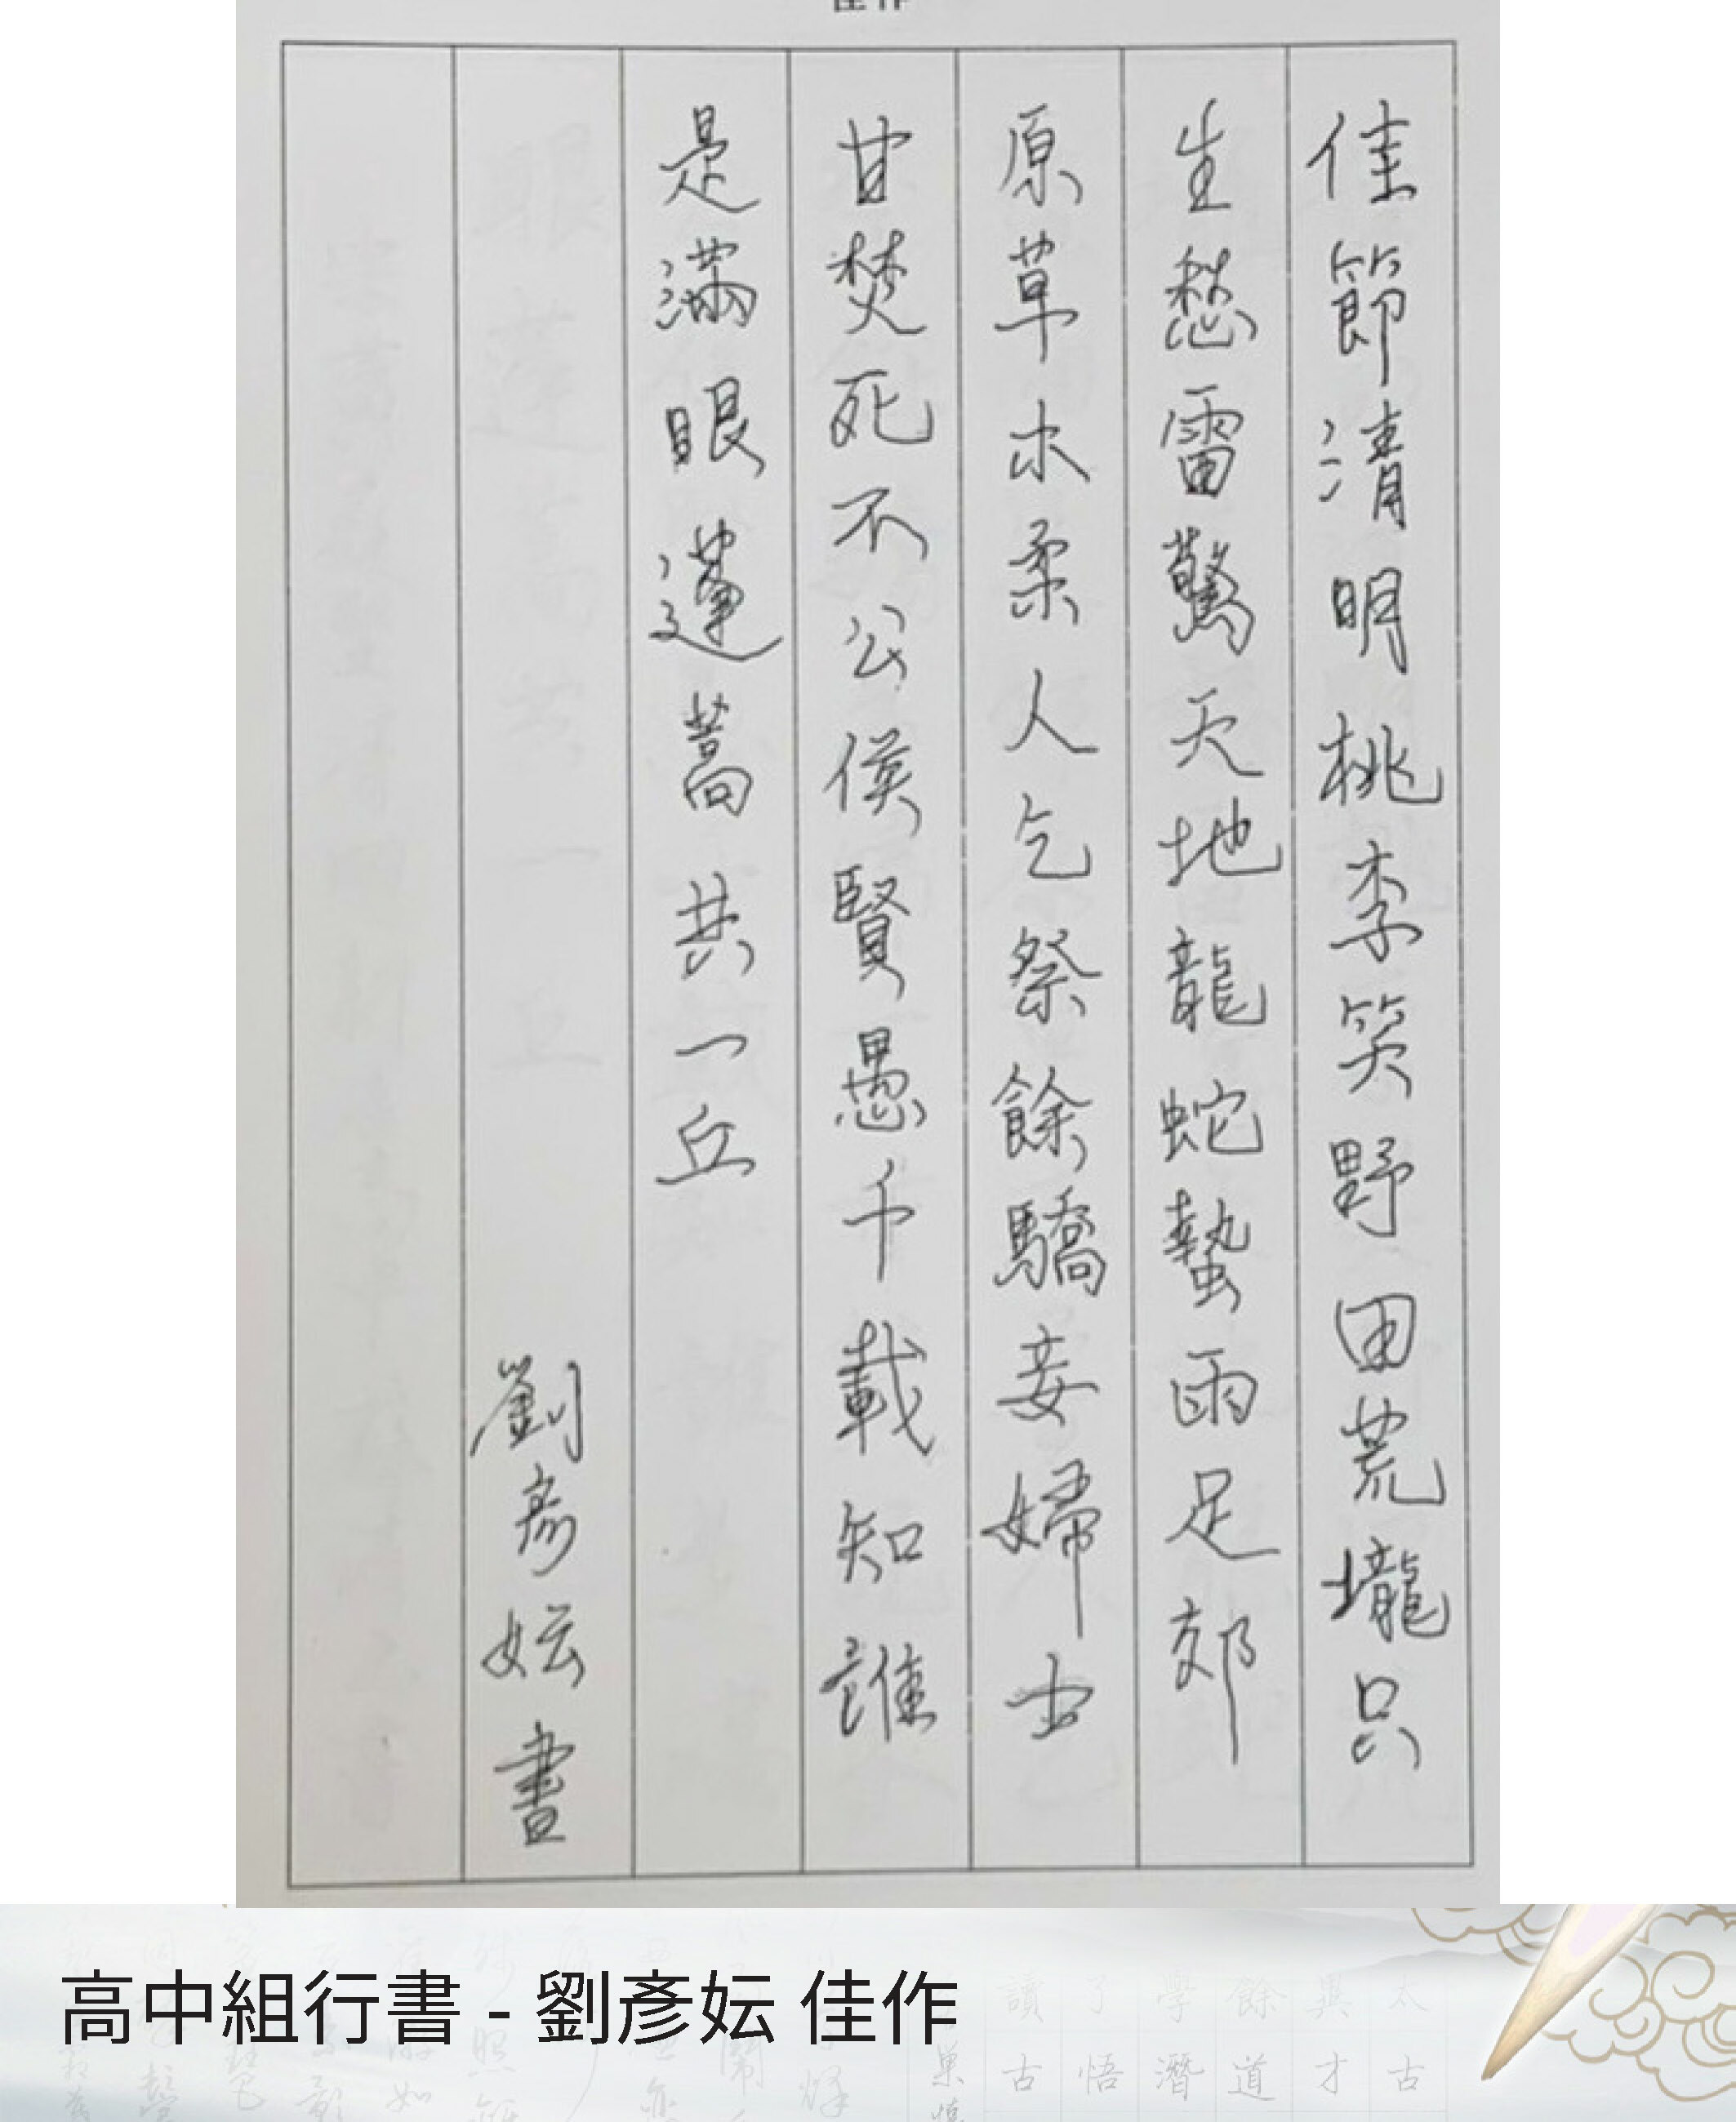 佳作
佳節清明桃李笑野田荒壠只
生愁雷驚天地龍蛇蟄雨足郊
原草木柔人乞祭餘驕妾婦士
甘焚死不公侯賢愚千載知誰
是滿眼蓬蒿共一丘
劉彥妘書
高中組行書 - 劉彥妘 佳作
讀了學餘與太
古悟潛道才古